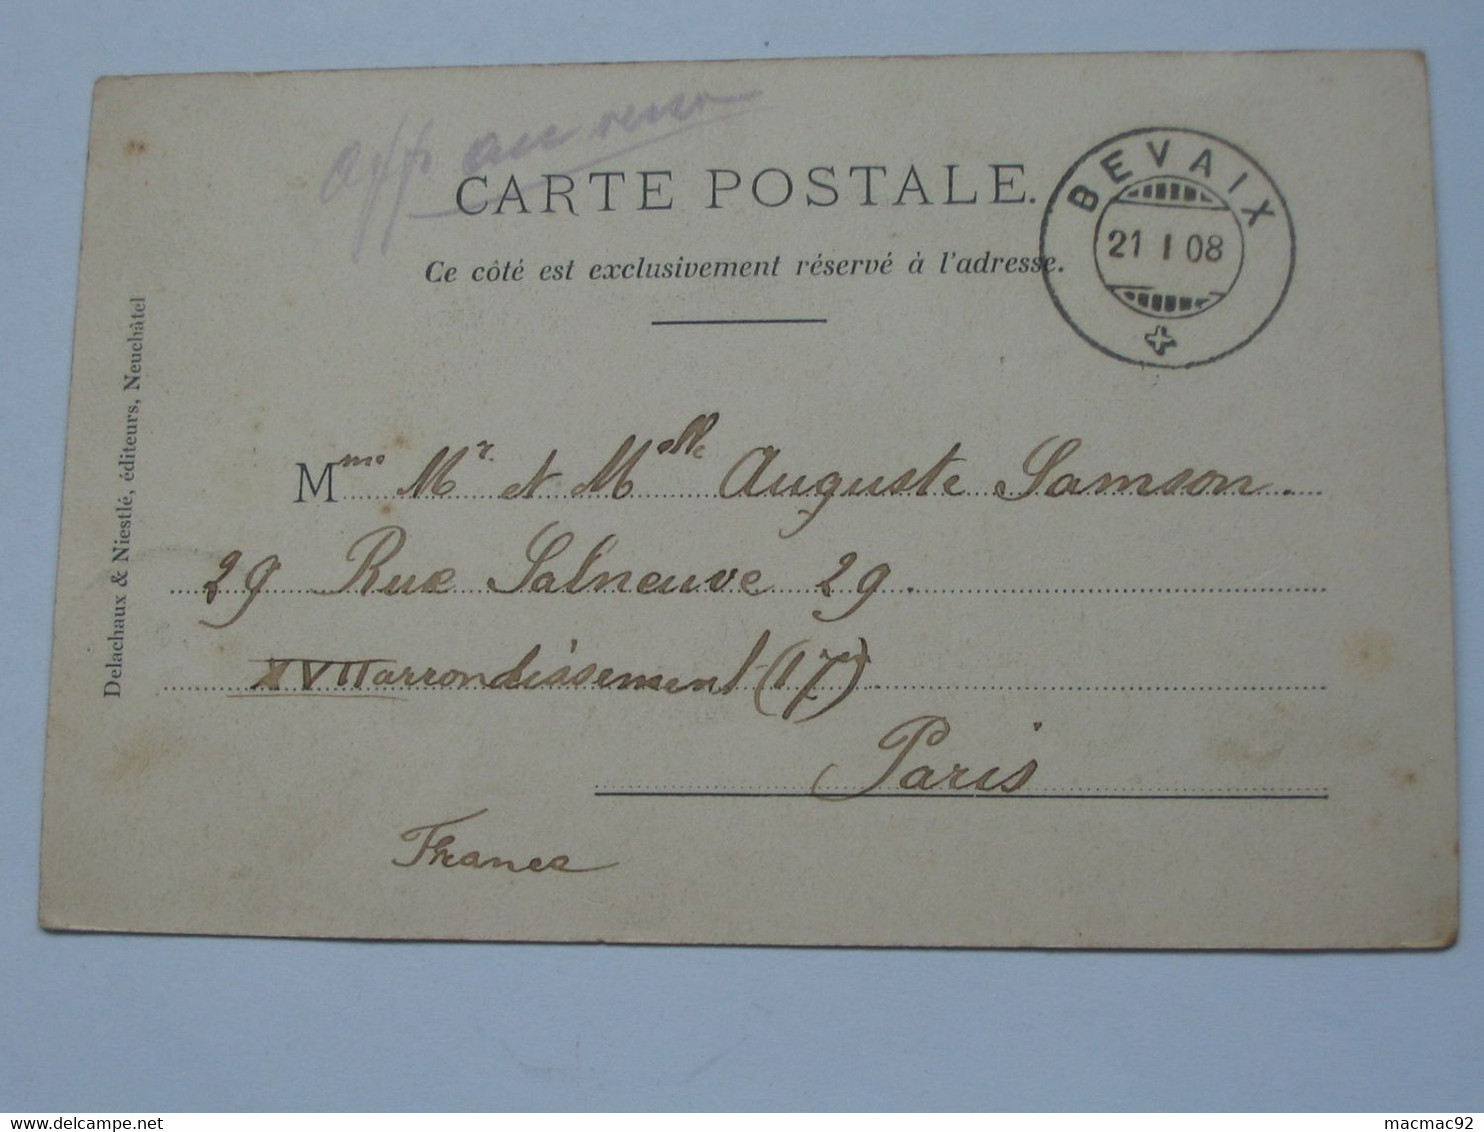 Aff. au verso
CARTE POSTALE.
Ce côté est exclusivement réservé à l'adresse.
BEVAIX
21 I 08
Delachaux & Niestlé, éditeurs, Neuchâtel
Mme Mr et Melle Auguste Samson.
29 Rue Salneuve 29.
XVII arrondissement (17)
Paris
France
www.delcampe.net
macmac92